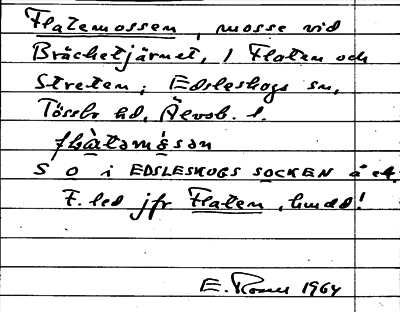 Flatemossen, mosse vid
Bräcketjärnet, / Flaten och
Streten; Edsleskogs sn,
Tössbo hd, Älvsb. l.
flàtamåsan
S O i EDSLESKOGS SOCKEN å ek.
F. led jfr Flaten, hmdd!
E. 1964